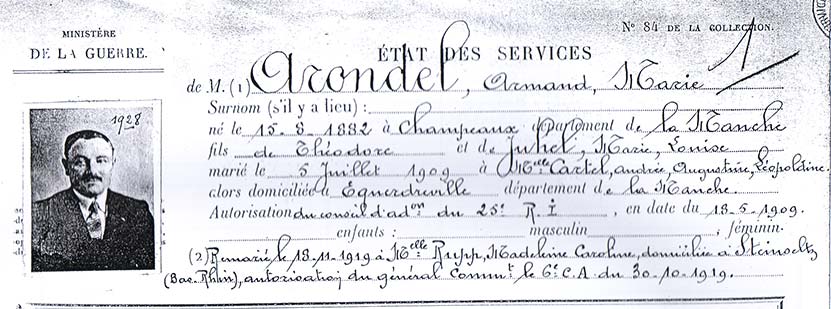 MINISTÈRE
DE LA GUERRE.
N° 84 DE LA COLLECTION.
1
ÉTAT DES SERVICES
de M. (1) Arondel, Armand, Marie
Surnom (s'il y a lieu) :
né le 15-8-1882 à Champeaux département de la Manche
fils de Théodore et de Juhel, Marie, Louise
marié le 5 Juillet 1909 à Melle Cartel, andrée, Augustine, Léopoldine.
alors domiciliée à Equerdreville département de la Manche.
Autorisation du conseil d'adon du 25e R.I, en date du 13-5-1909.
enfants : masculin , féminin.
(2) Remarié le 18-11-1919 à Melle Rupp, Madeleine Caroline, domiciliée à Steinseltz
(Bas. Rhin), autorisation du général Commt le 6e C.A du 30-10-1919.
1928